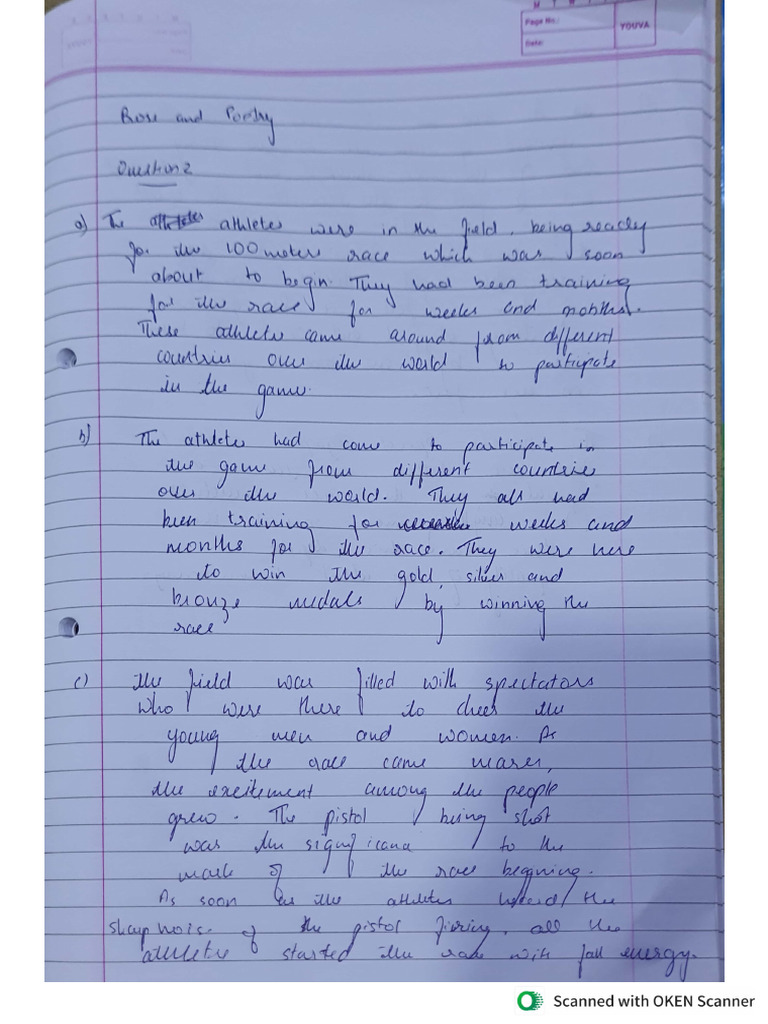 Page No.:
Date:
YOUVA
Prose and Poetry
Question 2
a) The athletes athletes were in the field, being ready
for the 100 meters race which was soon
about to begin. They had been training
for the race for weeks and months.
These athlete came around from different
countries over the world to participate
in the game.
b) The athletes had come to participate in
the game from different countries
over the world. They all had
been training for weeks and
months for the race. They were here
to win the gold, silver and
bronze medals by winning the
race
c) The field was filled with spectators
who were there to cheer the
young men and women. As
the race came nearer,
the excitement among the people
grew. The pistol being shot
was the significance to the
mark of the race beginning.
As soon as the athletes heard the
sharp noise of the pistol firing, all the
athlete started the race with full energy.
Scanned with OKEN Scanner